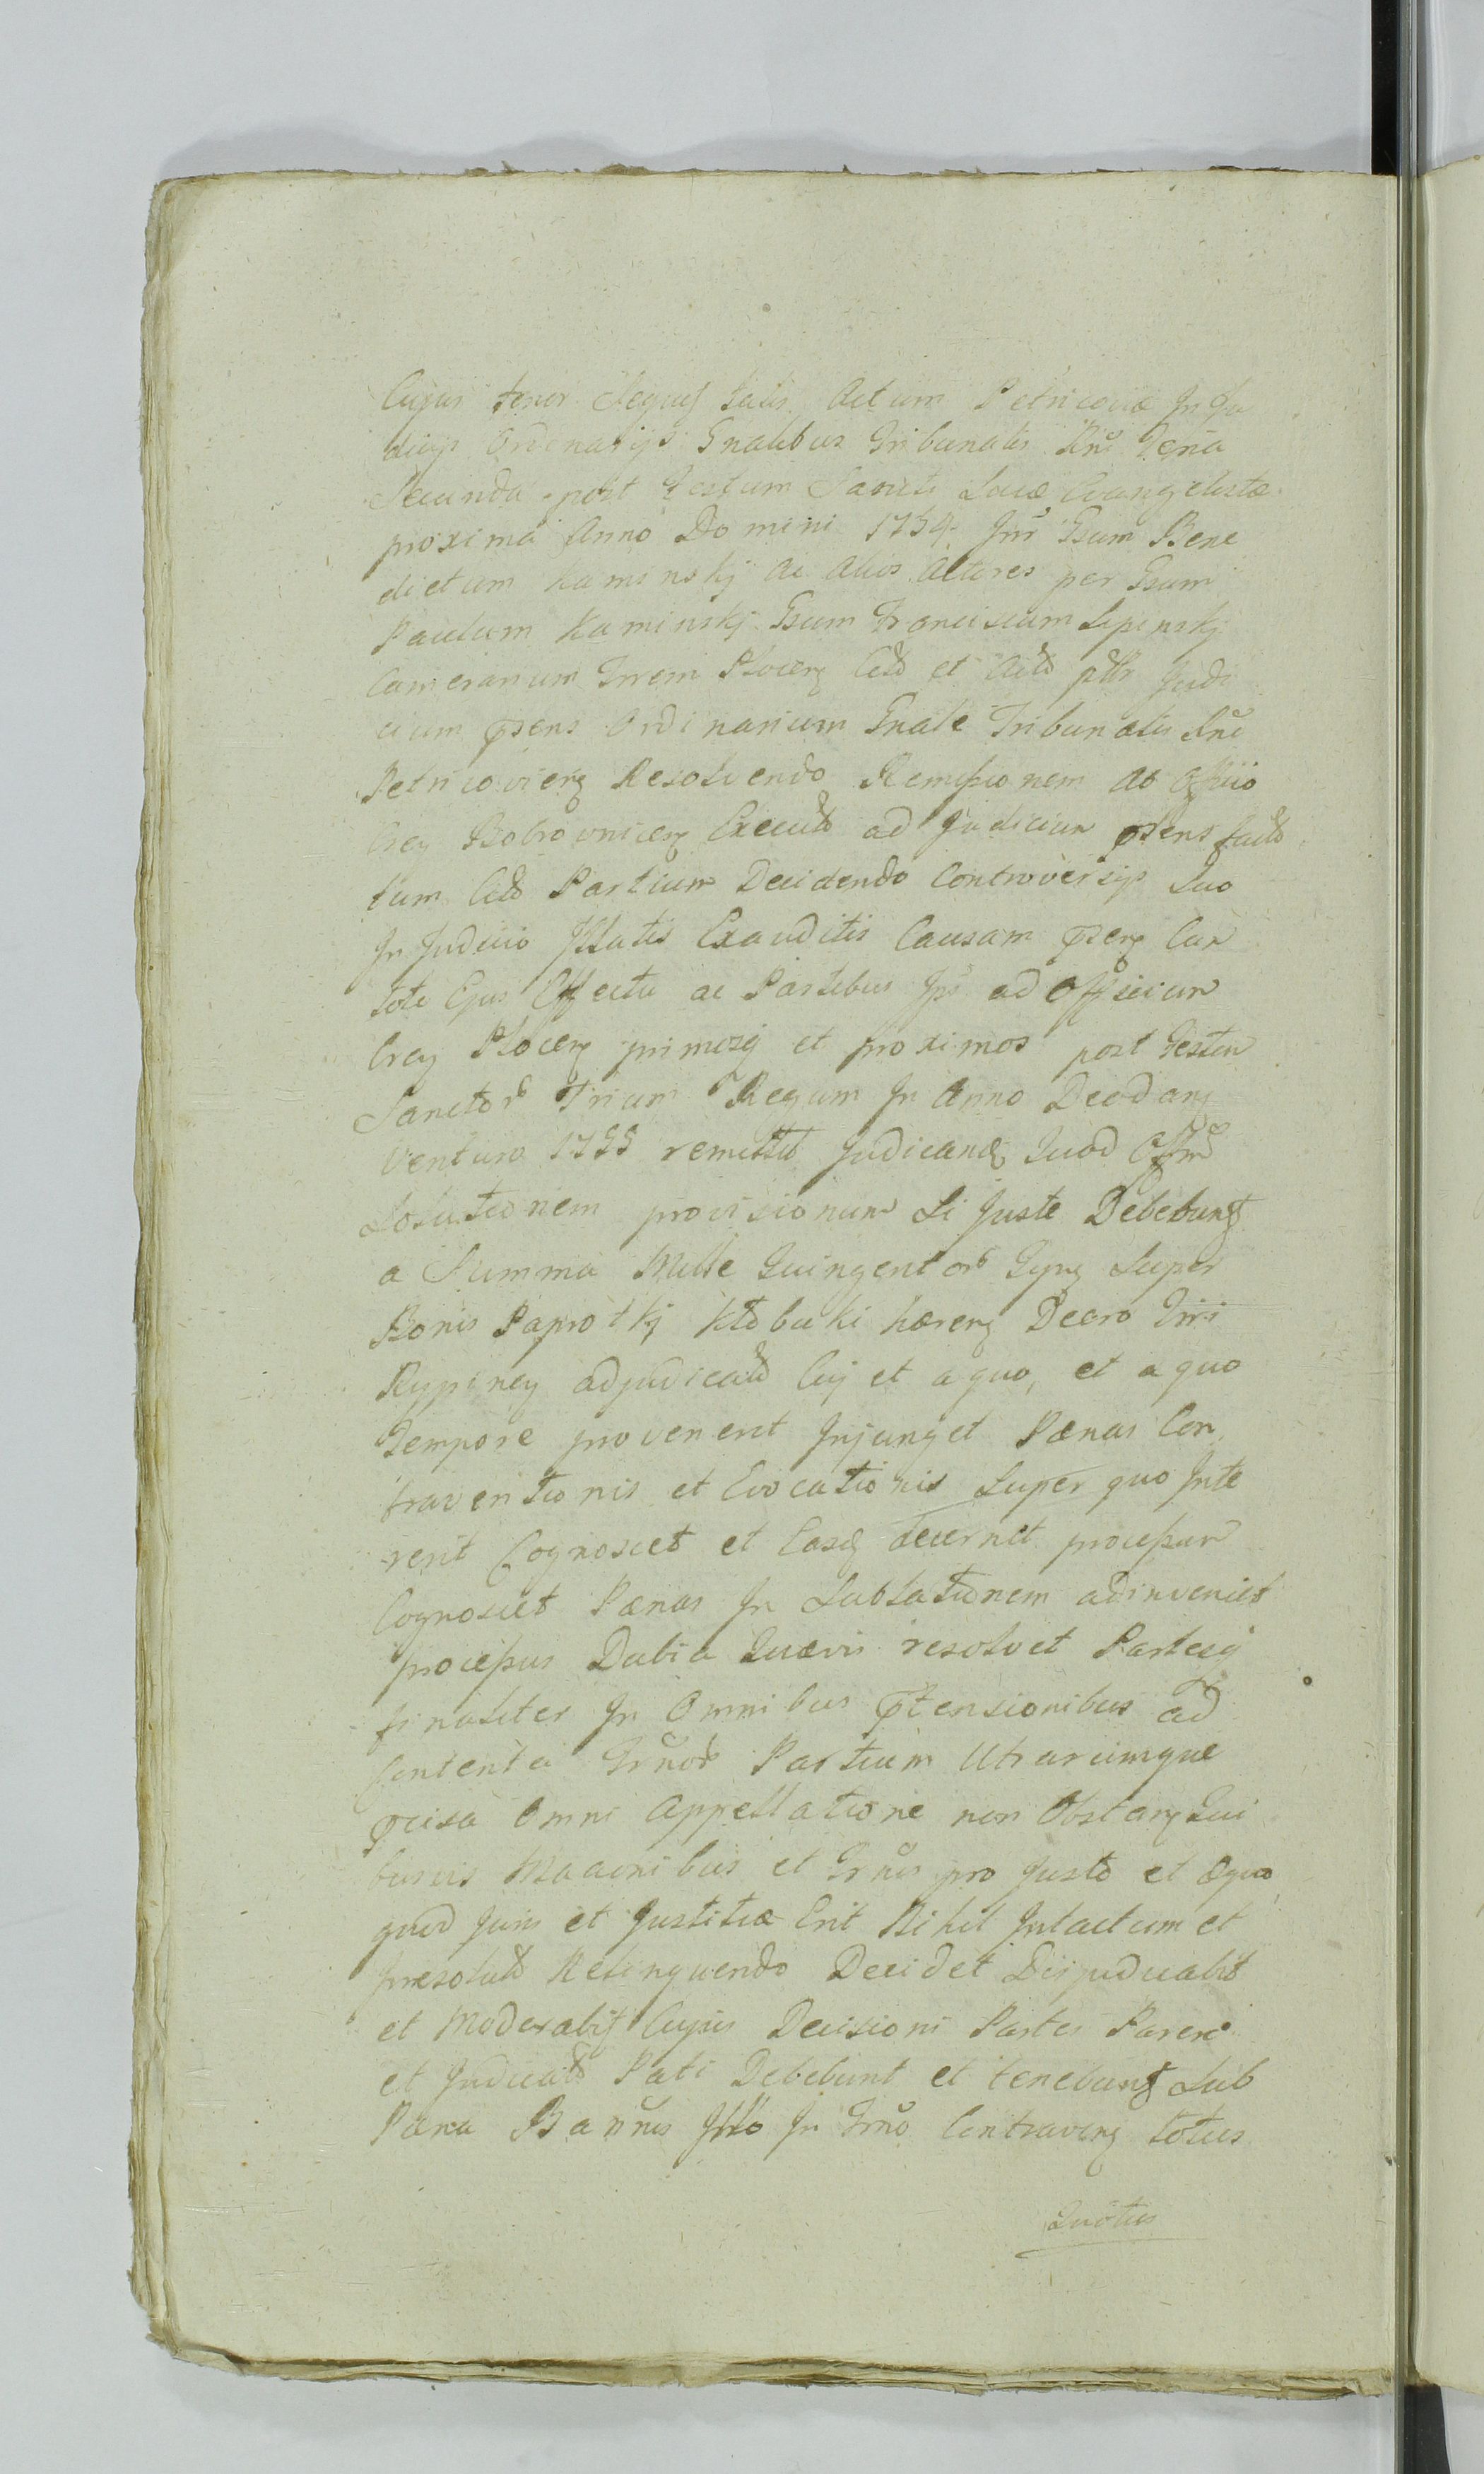 Cujus tenor sequit talis Actum Petricoviæ In Ju
dicijs Ordinarijs Gnalibus Tribunalis Rni Feria
Secunda post Festum Sancti Lucæ Evangelistæ
proxima Anno Domini 1754 Inr Gsum Bene
dictum Kaminskj ac Alios Actores per Gsum
Paulum Kaminskj Gsum Franciscum Lipinskj
Camerarium Trrem Plocen Citt et Actt Judi
cium Psens Ordinarium Gnale Tribunalis Rni
Petricovien Resolvendo Remissionem ab Officio
Cren Bobrownicen ad Judicium Psens factt
tum Citt Partium Decidendo Controversijs Suo
In Judicio Illatis Exauditis Causam Psen Cum
toto Ejus Effectu ac Partibus Ips ad Officium
Cren Plocen primosq et proximos post Festum
Sanctor Trium Regum In Anno Deo Dante
Venturo 1755 remittit Judicand Quod Offm
Solutionem provisionum Si Juste Debebunt
a Summa Mille Quingentor Tyng Super
Bonis Paprotkj Kłobuki hæren Decro Trri
Rypinen adjudicatt Cuj et a quo, et a quo
Tempore provenerit Injunget Pænas Con
traventionis et Evocationis Super quo Inte
rerit Cognoscet et Easq decernet processum
Cognoscet Pænas In Sublationem adinveniet
processus Dubia Quævis resolvet Partesq
finaliter In Omnibus Ptensionibus ad
Contenta Trnor Partium Utrarumque
Pcisa Omni Appellatione non Obstan Qui
busvis Maacnibus et Trnis pro Justo et Æquo
quod Juris et Justitiæ Erit Nihil Intactum et
Irresolutt Relinquendo Decidet Dijudicabit
et Moderabit Cujus Decisioni Partes Parere
et Judicatt Pati Debebunt et tenebunt Sub
Pæna Bannis Illo In Trno Contraven toties
Quoties